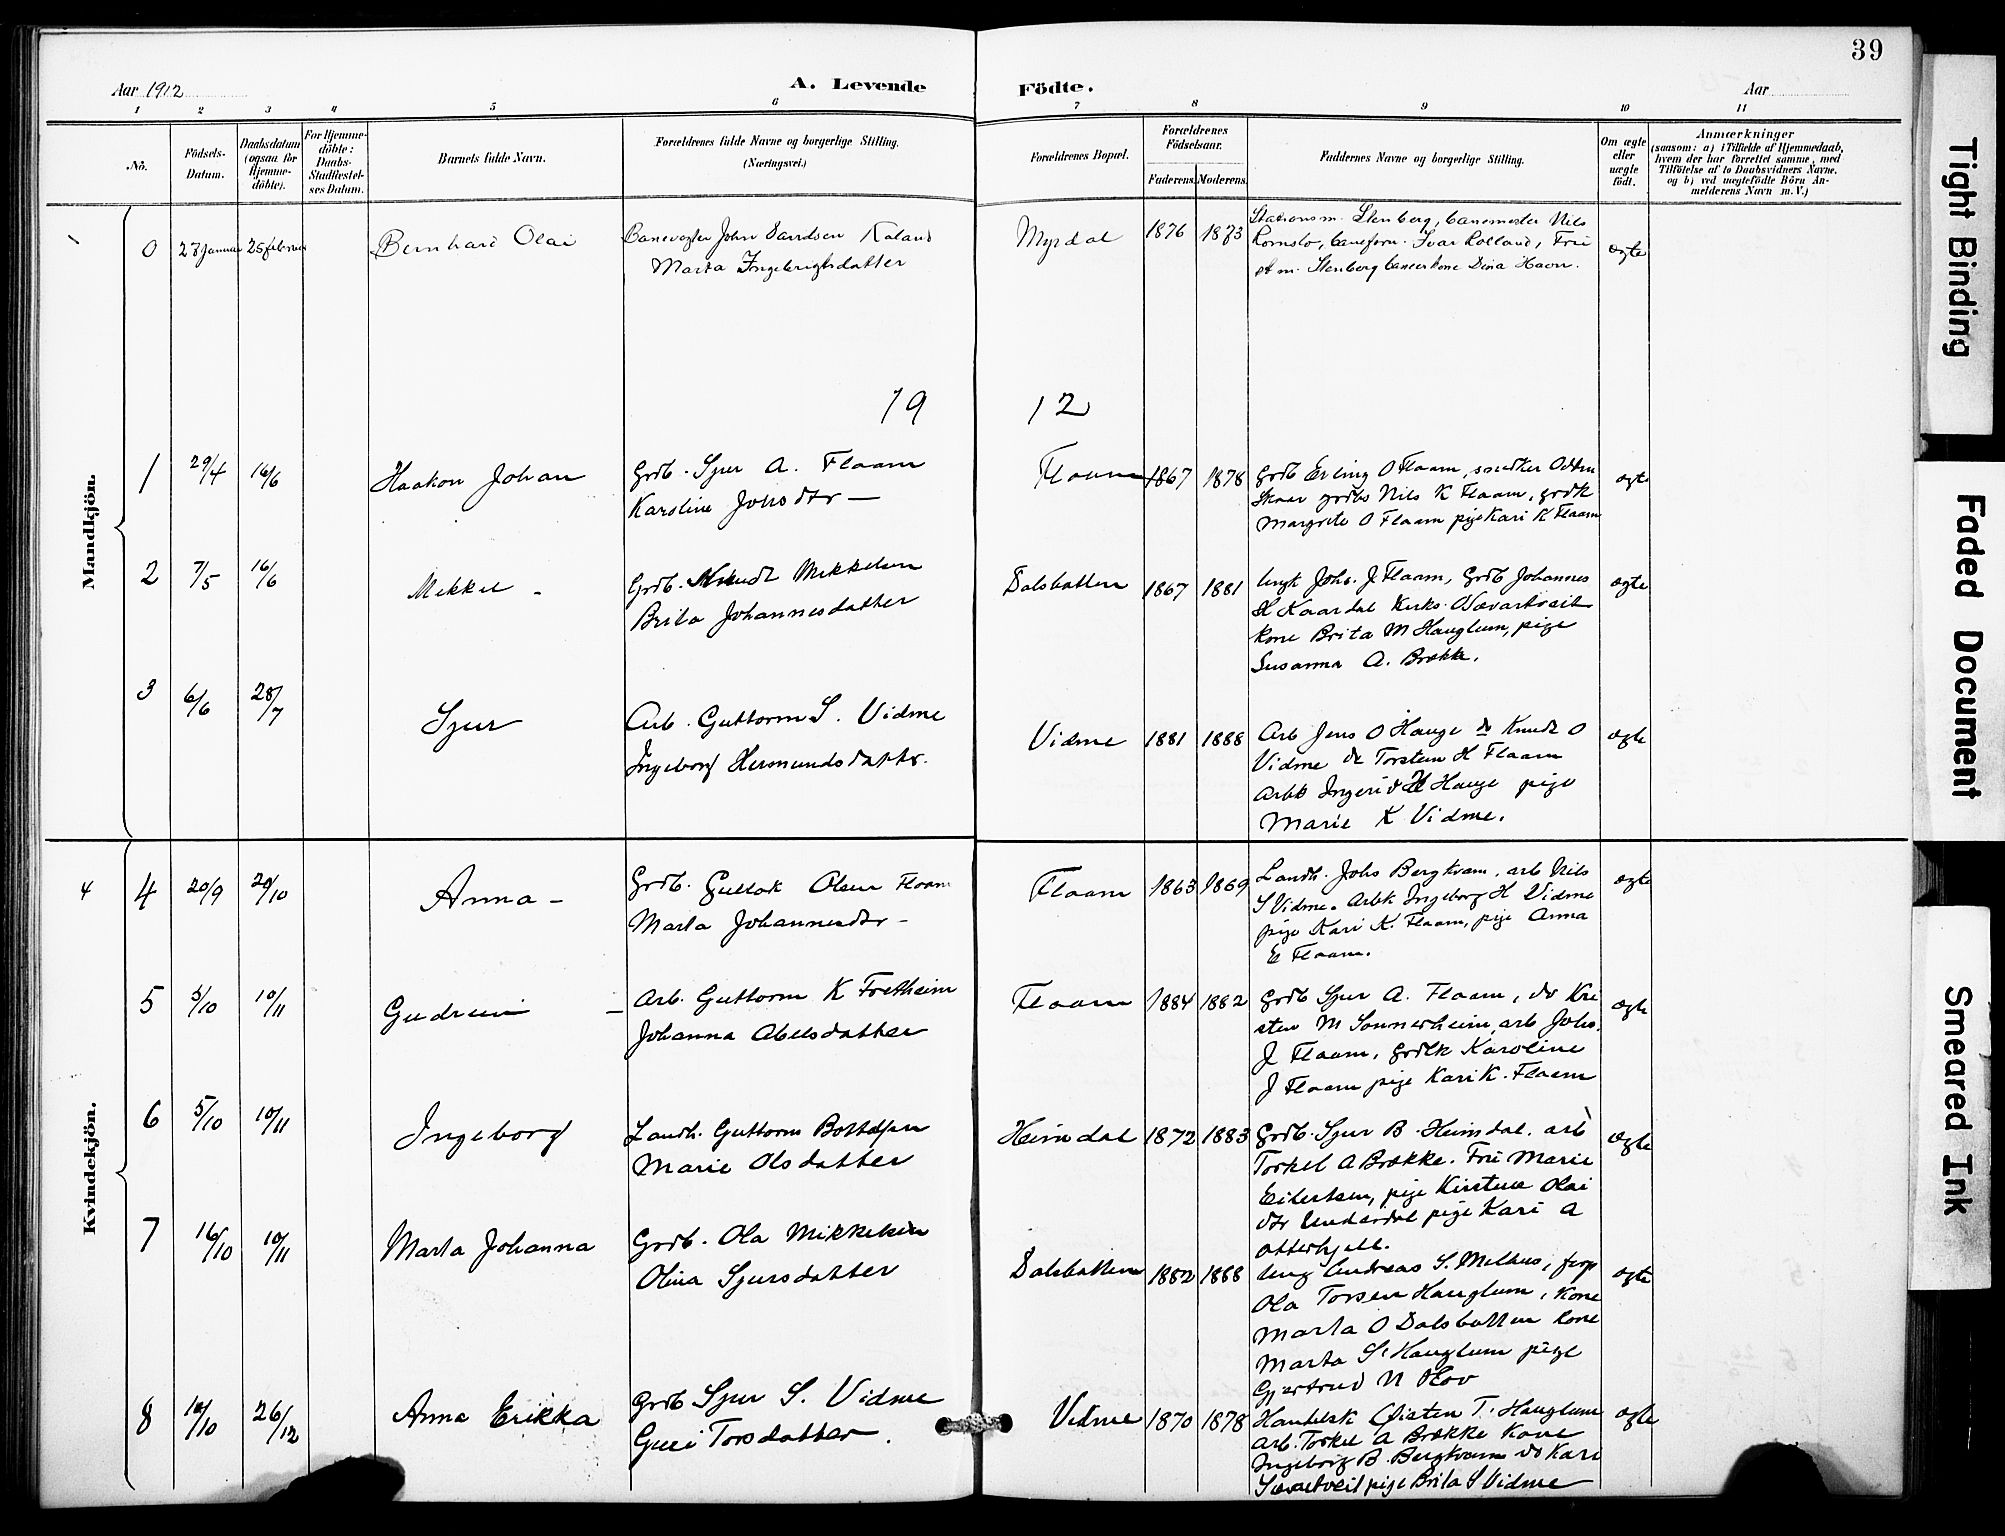 39
Aar 1912
A. Levende
Födte.
Aar
1 2 3 4 5 6 7 8 9 10 11
No.
Födsels-Datum.
Daabsdatum (ogsaa for Hjemme-döbte).
For Hjemme-döbte: Daabs-Stadfæstel-ses Datum.
Barnets fulde Navn.
Forældrenes fulde Navne og borgerlige Stilling.
(Næringsvei.)
Forældrenes Bopæl.
Forældrenes Födselsaar.
Faderens. Moderens.
Faddernes Navne og borgerlige Stilling.
Om ægte eller uægte födt.
Anmærkninger
(saasom: a) i Tilfælde af Hjemmedaab,
hvem der har forrettet samme, med
Tilföielse af to Daabsvidners Navne,
og b) ved uægtefödte Börn An-
melderens Navn m. V.)
Mandkjön.
0 27 Januar 25 februar Bernhard Olai Banevogter John Samdsen Kaland
Marta Ingebrigtsdatter
Myrdal 1876 1873 Stationsm. Stenberg, banemester Nils
Romslo, baneform. Ivar Rolland, Frü
st m. Stenberg kone Dina Havn.
ægte
19 12
1 29/4 16/6 Haakon Johan Grdb. Sjur A. Flaam
Karoline Johsdtr —
Flaam 1867 1878 Grdb Erling O Flaam, snedker Odden
Skaar grdbs Nils K Flaam, grdk
Margrete O Flaam pige Kari K Flaam
ægte
2 7/5 16/6 Mikkel - Grdb. Knudt Mikkelsen
Brita Johannesdatter
Dalsbotten 1867 1881 Ungk Johs. J. Flaam, Grdb Johannes
H Kaardal Kirks.
kone Brita M Hauglum, pige
Susanna A. Brække.
ægte
3 6/6 28/7 Sjur Arb. Guttorm S. Vidme
Ingeborg Hermundsdattr.
Vidme 1881 1888 Arb Jens O Hauge do Knudt O
Vidme do Torsten H Flaam
Arbk Ingerid H Hauge pige
Marie K Vidme.
ægte
Kvindekjön.
4 4 20/9 20/10 Anna - Grdb. Guttok Olsen Flaam
Marta Johannesdtr -
Flaam 1863 1869 Landh. Johs Bergkvam, arb Nils
S Vidme. Arbk Ingeborg H Vidme
pige Kari K. Flaam, pige Anna
E Flaam.
ægte
5 5/10 10/11 Gudrun - Arb. Guttorm K Fretheim
Johanna Abelsdatter
Flaam 1884 1882 Grdb Sjur A. Flaam, do Kri
sten M Sonnerheim, arb Johs.
J Flaam, grdbk Karoline
J Flaam pige Kari K. Flaam
ægte
6 5/10 10/11 Ingeborg Landh. Guttorm Bottolfsen
Marie Olsdatter
Heimdal 1872 1883 Grdb. Sjur B. Heimdal. arb
Torkel A Brække. Frü Marie
Eilertsen, pige Kirstine Olai
dtr Underdal pige Kari A
Otterhjell.
ægte
7 16/10 10/11 Marta Johanna Grdb. Ola Mikkelsen
Olina Sjursdatter
Dalsbotten 1882 1888 Ung Andreas S. Melhus, forp
Ola Torsen Hauglum, Kone
Marta O Dalsbotten kone
Marta S. Hauglum pige
Gjertrud N Hov
ægte
8 10/10 26/12 Anna Erikka Grdb Sjur S. Vidme
Guri Torsdatter.
Vidme 1870 1878 Handelsk Cristen T. Hauglum
Arb. Torkel A Brække Kone
Ingeborg B. Bergkvam do Kari
pige Brita S Vidme
ægte
Tight Binding
Faded Document
Smeared Ink